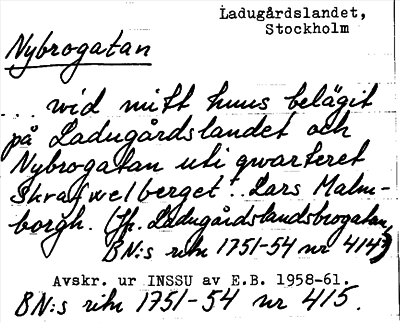 Ladugårdslandet,
Stockholm
Nybrogatan
... wid mitt huus belägit
på Ladugårdslandet och
Nybrogatan uti qwarteret
Skrafwelberget". Lars Malm-
borgh. (Jfr. Ladugårdslandsbrogatan,
BN:s rikn 1751-54 nr 414?)
Avskr. ur INSSU av E.B. 1958-61.
BN:s rikn 1751-54 nr 415.